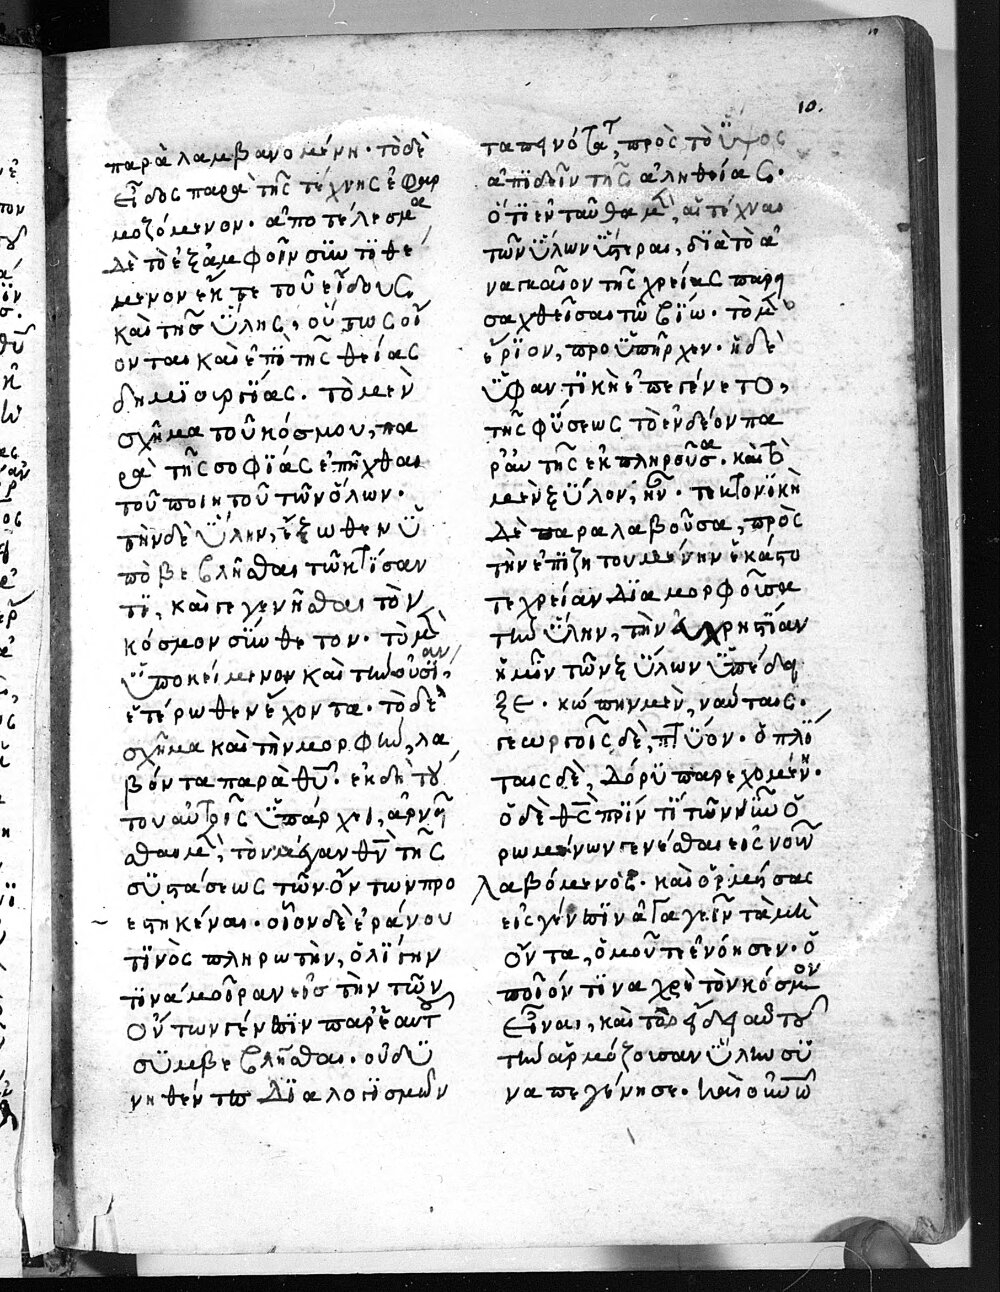 10.
παρὰ λαμβανομένη· τὸ δὲ
εἶδος παρὰ τῆς τέχνης ἐφαρ
μοζόμενον· ἀποτέλεσμα
δὲ τὸ ἐξ ἀμφοῖν συντϊθέ
μενον ἔκ τε τοῦ εἴδους
καὶ τῆς ὕλης, οὕτως οἴ
ονται καὶ ἐπὶ τῆς θείας
δημϊουργϊας. τὸ μὲν
σχῆμα τοῦ κόσμου, πα
ρὰ τῆς σοφϊας ἐπῆχθαι
τοῦ ποιητοῦ τῶν ὅλων·
τὴν δὲ ὕλην, ἔξωθεν ὑ
ποβεβλῆσθαι τῶ κτϊσαν
τϊ, καὶ γεγενῆσθαι τὸν
κόσμον σύνθετον· τὸ μὲν
ὑποκείμενον καὶ τὴν οὐσίαν,
ἑτέρωθεν ἔχοντα· τὸ δὲ
σχῆμα καὶ τὴν μορφὴν, λα
βόντα παρὰ θυ. ἐκ δὴ τού
του αὐτοῖς ὑπάρχει, ἀρνεῖ
σθαι μὲν, τὸν μέγαν θν τῆς
συστάσεως τῶν ὄντων προ
εστηκέναι· οἷον δὲ ἐράνου
τϊνὸς πληρωτὴν, ὀλϊγην
τϊνα μοῖραν εἰς τὴν τῶν
ὄντων γένεσϊν παρ' ἑαυτοῦ
συμβεβλῆσθαι. οὐ δυ
νηθέντων δϊα λογϊσμῶν
ταπεινότητα, πρὸς τὸ ὕψος
ἀπϊδεῖν τῆς ἀληθείας·
ὅτϊ ἐνταῦθα μὲν, αἱ τέχναι
τῶν ὑλων ὕστεραι, δϊὰ τὸ ἀ
ναγκαῖον τῆς χρείας παρει
σαχθεῖσαι τῶ βϊω· τὸ μὲν
ἔρϊον, προϋπῆρχεν· ἡ δὲ
ὑφαντϊκὴ ἐπεγένετο,
τῆς φύσεως τὸ ἐνδέον πα
ρ' ἑαυτῆς ἐκπληροῦσα· καὶ τὸ
μὲν ξύλον, ἦν· τεκτονϊκὴ
δὲ παραλαβοῦσα, πρὸς
τὴν ἐπϊζητουμένην ἑκάστο
τε χρείαν διαμορφοῦσα
τὴν ὕλην, τὴν εὐχρηστϊαν
ἡμῖν τῶν ξύλων ὑπέδει
ξε· κώπην μὲν, ναύταις·
γεωργοῖς δὲ, πτύον· ὁπλϊ
ταις δὲ, δόρυ παρεχομένη·
ὁ δὲ θς πρϊν τϊ τῶν νῦν ὁ
ρωμένων γενέσθαι εἰς νοῦν
λαβόμενος· καὶ ὁρμήσας
εἰς γένεσϊν ἀγαγεῖν τὰ μὴ
ὄντα, ὁμοῦ τε ἐνόησεν· ὁ
ποῖόν τϊνα χρὴ τὸν κόσμον
εἶναι, καὶ τῶ εἴδει αὐτοῦ
τὴν ἁρμόζουσαν ὕλην συ
ναπεγέννησε· καὶ οὐνῶ